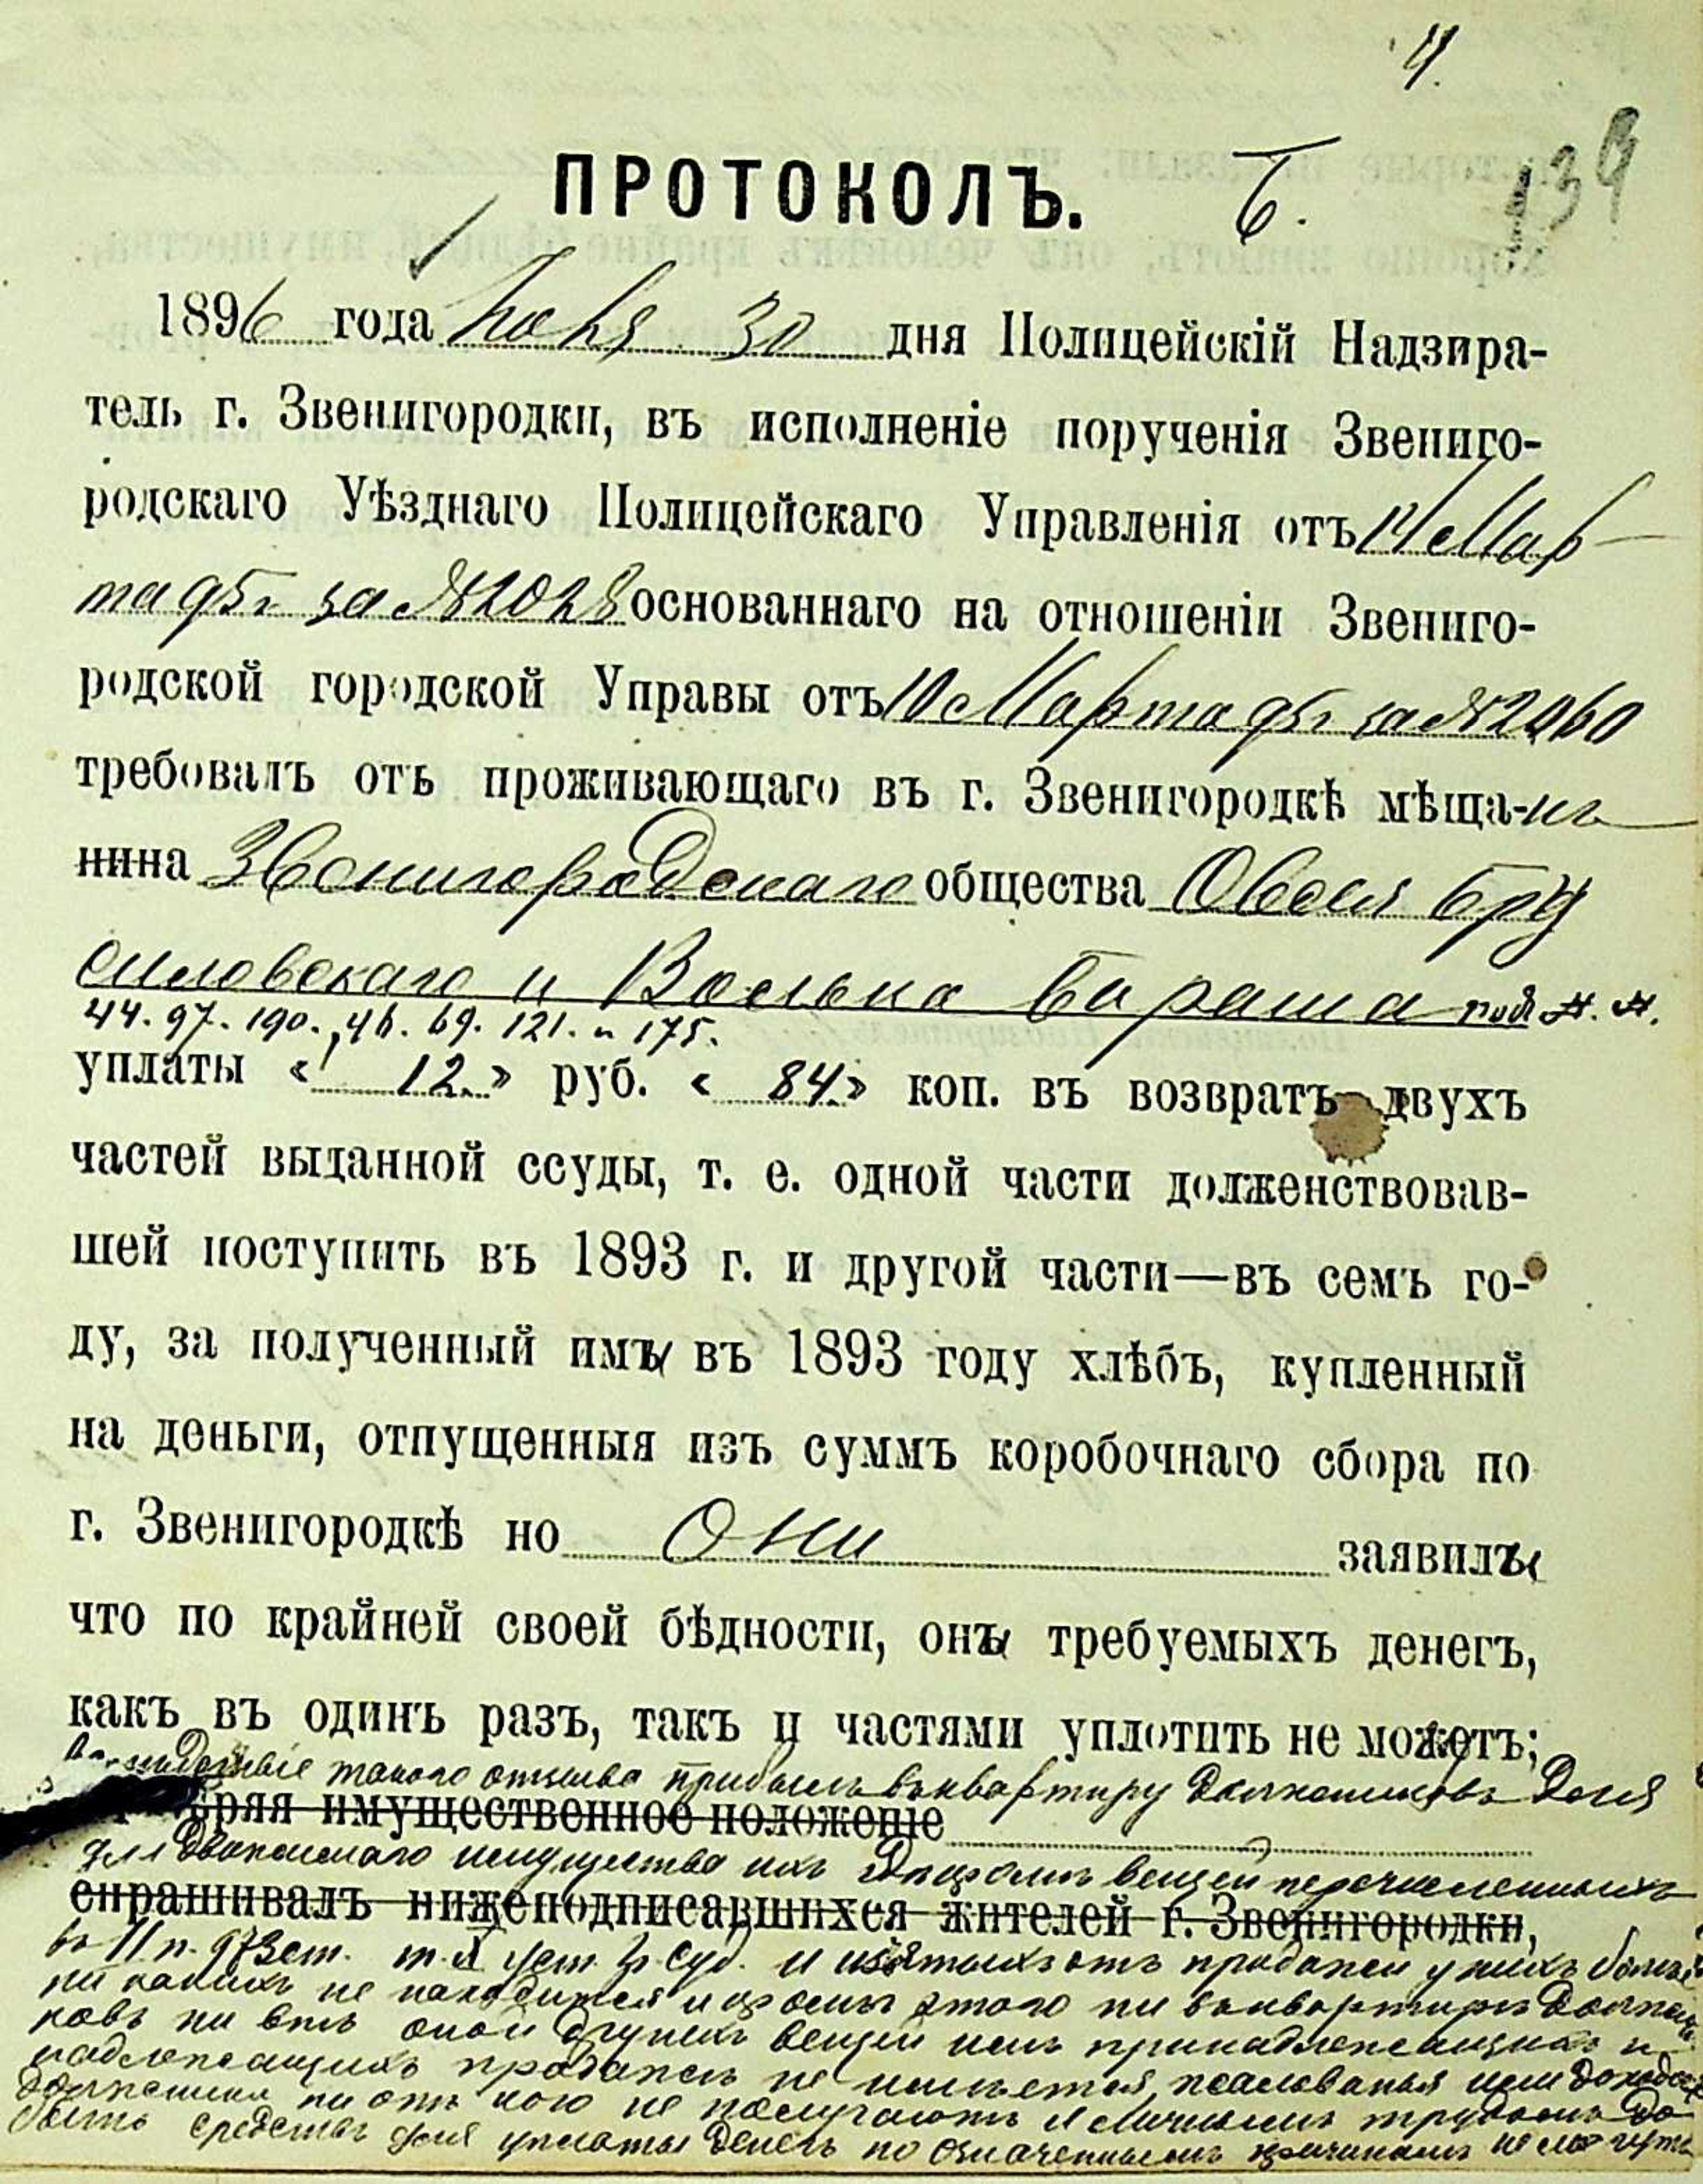 4.
139
ПРОТОКОЛЪ. Б.
1896 года 30 дня Полицейскій Надзира-
тель г. Звенигородки, въ исполненіе порученія Звениго-
родскаго Уѣзднаго Полицейскаго Управленія отъ 14 Мар
та 95г за № 2028 основаннаго на отношеніи Звениго-
родской городской Управы отъ 10 Марта 95г за № 2060
требовалъ отъ проживающаго въ г. Звенигородкѣ мѣща-нъ
нина Звенигородскаго общества Овсея Бру
силовскаго и Волька Бараша под №. №.
44. 97. 190. 46. 69. 121. и 175.
уплаты « 12. » руб. « 84 » коп. въ возвратъ двухъ
частей выданной ссуды, т. е. одной части долженствовав-
шей поступить въ 1893 г. и другой части—въ семъ го-
ду, за полученный имъи въ 1893 году хлѣбъ, купленный
на деньги, отпущенныя изъ суммъ коробочнаго сбора по
г. Звенигородкѣ но Они заявилъи
что по крайней своей бѣдности, онъи требуемыхъ денегъ,
какъ въ одинъ разъ, такъ и частями уплотить не могутъ;
такого отзыва прибылъ въ квартиру должниковъ
ряя имущественное положеніе
движимаго имущества ихъ вещей перечисленныхъ
спрашивалъ нижеподписавшихся жителей г. Звенигородки,
въ 11 п. 973 ст. т. уст. гр. суд. и изъятыхъ отъ продажи у нихъ
ни какихъ не находится и кромѣ этого ни въ квартирѣ
ковъ ни внѣ оной другихъ вещей имъ принадлежащихъ и
надлежащихъ продажѣ не имѣется, жалованья или
должники ни отъ кого не получаютъ и личнымъ трудомъ до
быть средствъ для уплаты денегъ по означеннымъ причинамъ не могутъ